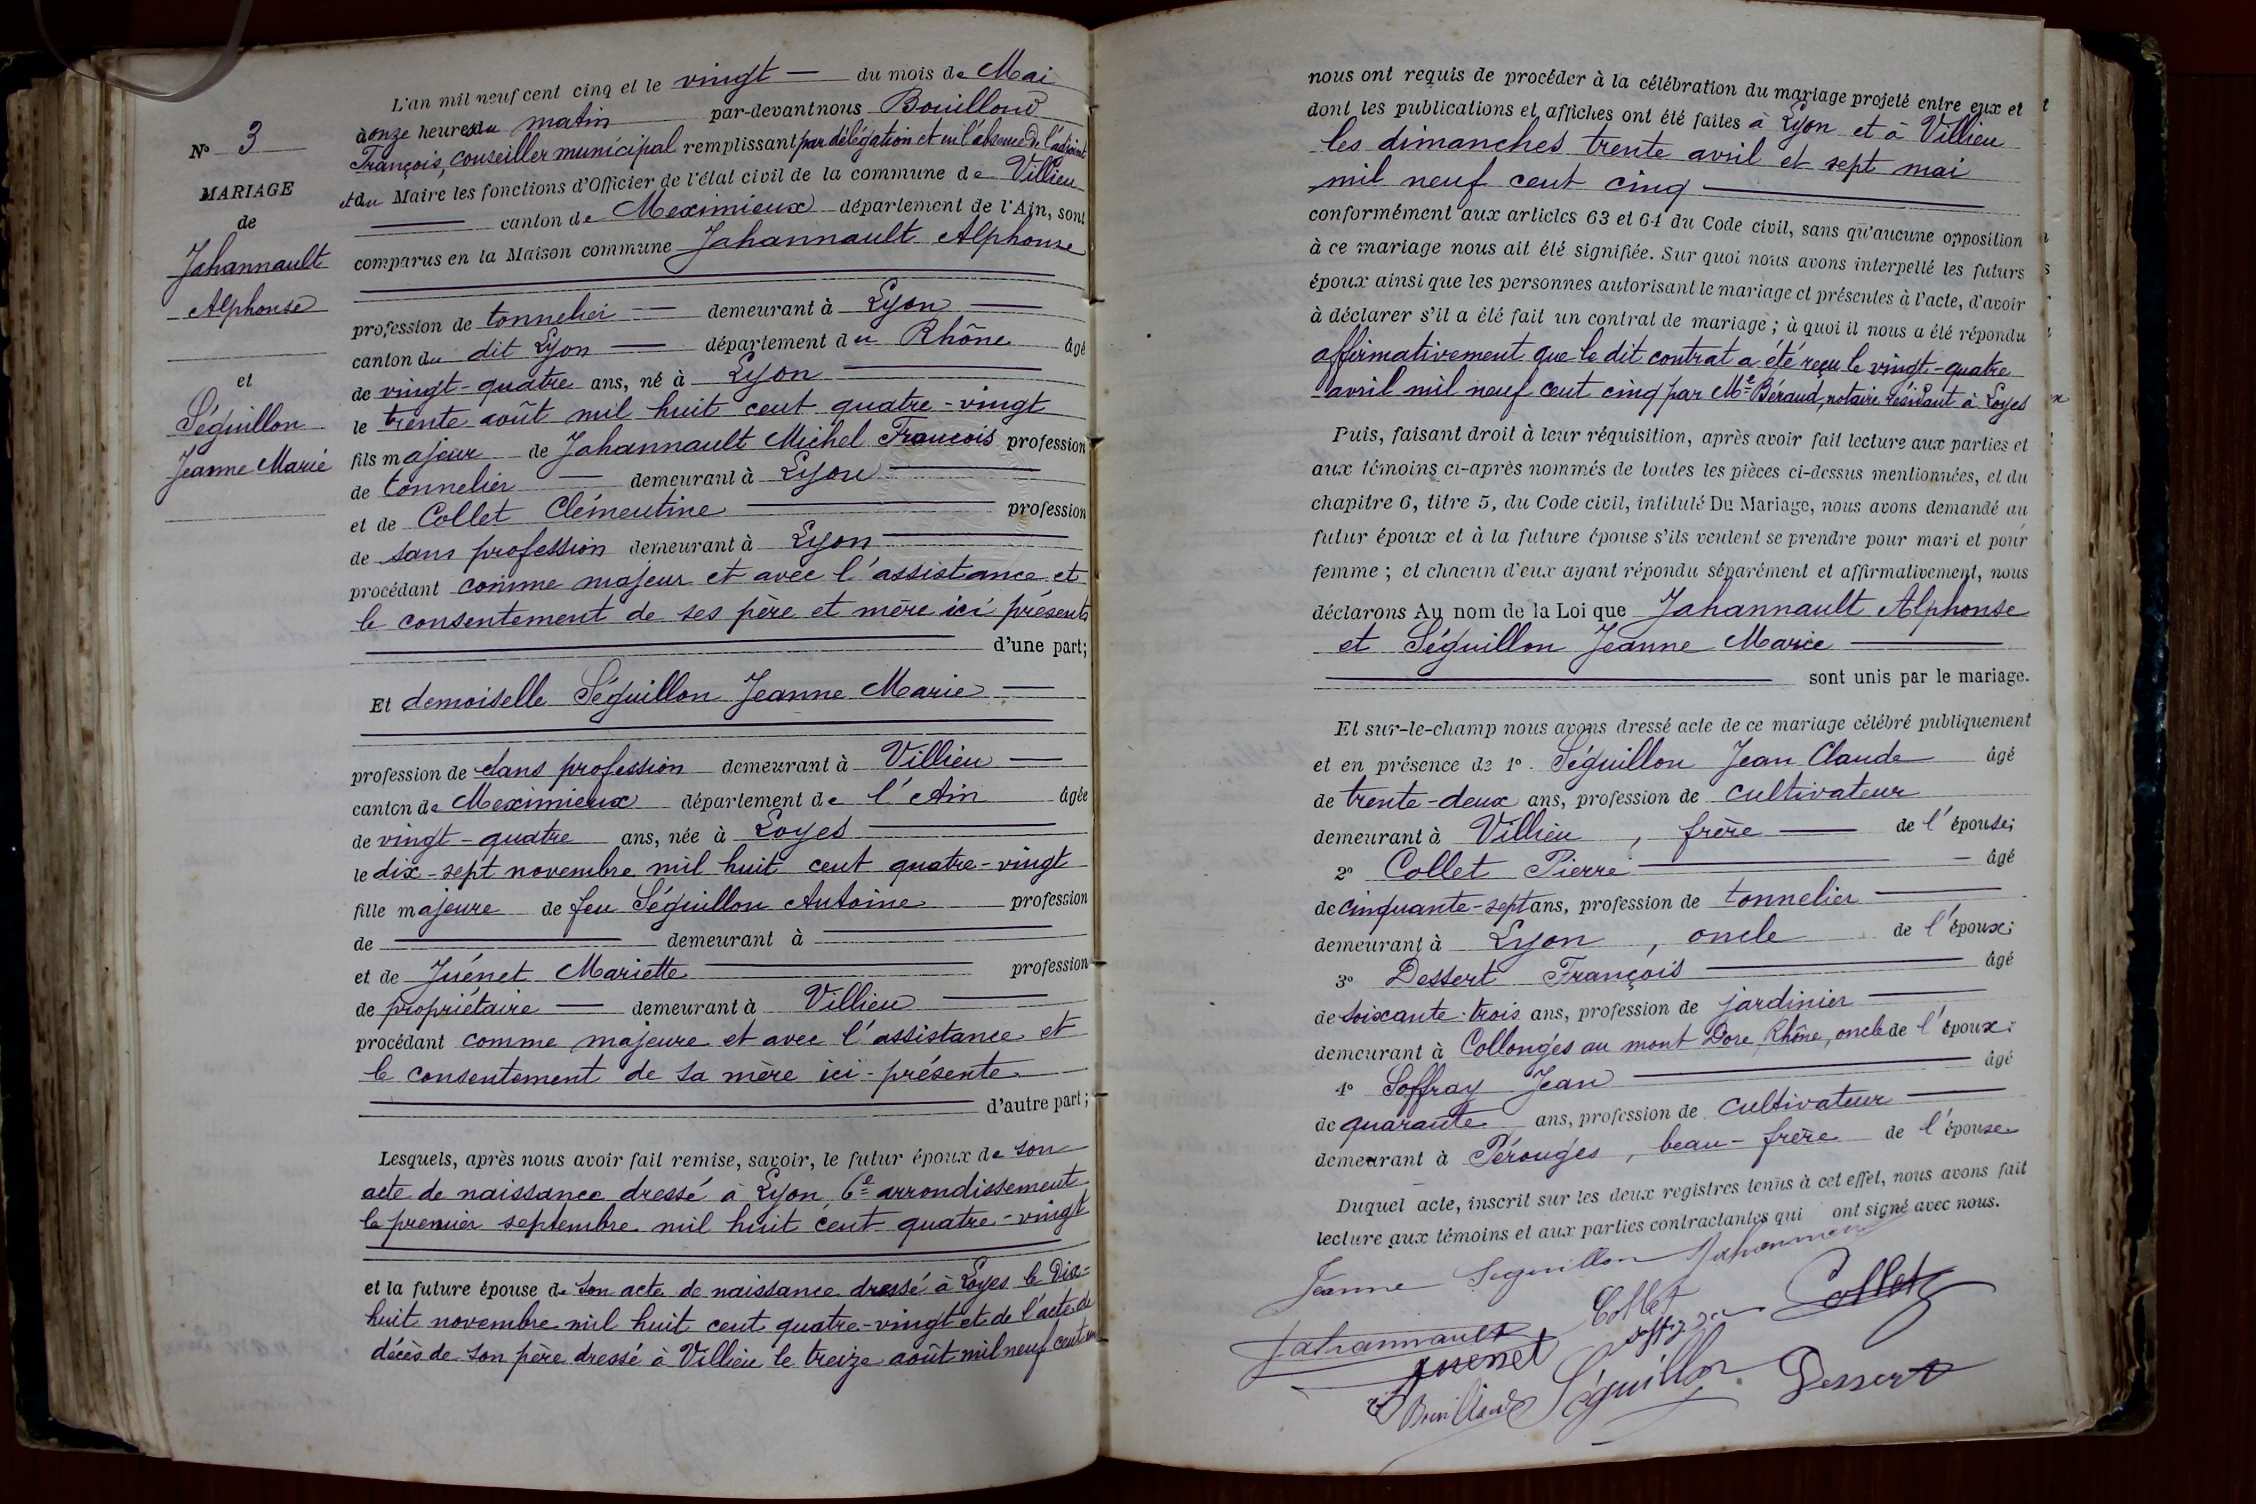 N° 3
MARIAGE
de
Jahannault
Alphonse
et
Séguillon
Jeanne Marie
L'an mil neuf cent cinq et le vingt — du mois de Mai
à onze heures du matin par-devant nous Bouilloud
François, conseiller municipal remplissant par délégation et en l'absence de l'adjoint
et du Maire les fonctions d'Officier de l'état civil de la commune de Villieu
canton de Meximieux département de l'Ain, sont
comparus en la Maison commune Jahannault Alphonse
profession de tonnelier — demeurant à Lyon —
canton du dit Lyon — département du Rhône âgé
de vingt-quatre ans, né à Lyon —
le trente août mil huit cent quatre-vingt
fils majeur de Jahannault Michel François profession
de tonnelier — demeurant à Lyon —
et de Collet Clémentine — profession
de sans profession demeurant à Lyon —
procédant comme majeur et avec l'assistance et
le consentement de ses père et mère ici présents
d'une part;
Et demoiselle Séguillon Jeanne Marie —
profession de sans profession demeurant à Villieu —
canton de Meximieux département de l'Ain âgée
de vingt-quatre ans, née à Loyes —
le dix-sept novembre mil huit cent quatre-vingt
fille majeure de feu Séguillon Antoine profession
de — demeurant à —
et de Juénet Mariette — profession
de propriétaire — demeurant à Villieu —
procédant comme majeure et avec l'assistance et
le consentement de sa mère ici-présente.
d'autre part;
Lesquels, après nous avoir fait remise, savoir, le futur époux de son
acte de naissance dressé à Lyon 6e arrondissement
le premier septembre mil huit cent quatre-vingt
et la future épouse de son acte de naissance dressé à Loyes le dix-
huit novembre mil huit cent quatre-vingt et de l'acte de
décès de son père dressé à Villieu le treize août mil neuf cent un
nous ont requis de procéder à la célébration du mariage projeté entre eux et
dont les publications et affiches ont été faites à Lyon et à Villieu
les dimanches trente avril et sept mai
mil neuf cent cinq —
conformément aux articles 63 et 64 du Code civil, sans qu'aucune opposition
à ce mariage nous ait été signifiée. Sur quoi nous avons interpellé les futurs
époux ainsi que les personnes autorisant le mariage et présentes à l'acte, d'avoir
à déclarer s'il a été fait un contrat de mariage; à quoi il nous a été répondu
affirmativement que le dit contrat a été reçu le vingt-quatre
avril mil neuf cent cinq par Me Béraud, notaire résidant à Loyes
Puis, faisant droit à leur réquisition, après avoir fait lecture aux parties et
aux témoins ci-après nommés de toutes les pièces ci-dessus mentionnées, et du
chapitre 6, titre 5, du Code civil, intitulé Du Mariage, nous avons demandé au
futur époux et à la future épouse s'ils veulent se prendre pour mari et pour
femme; et chacun d'eux ayant répondu séparément et affirmativement, nous
déclarons Au nom de la Loi que Jahannault Alphonse
et Séguillon Jeanne Marie —
sont unis par le mariage.
Et sur-le-champ nous avons dressé acte de ce mariage célébré publiquement
et en présence de 1° Séguillon Jean Claude âgé
de trente-deux ans, profession de cultivateur
demeurant à Villieu, frère — de l'épouse;
2° Collet Pierre — âgé
de cinquante-sept ans, profession de tonnelier —
demeurant à Lyon, oncle de l'époux;
3° Dessert François — âgé
de soixante-trois ans, profession de jardinier —
demeurant à Collonges au mont Dore, Rhône, oncle de l'époux;
4° Soffray Jean — âgé
de quarante ans, profession de cultivateur —
demeurant à Pérouges, beau-frère de l'épouse
Duquel acte, inscrit sur les deux registres tenus à cet effet, nous avons fait
lecture aux témoins et aux parties contractantes qui ont signé avec nous.
Jeanne Seguillon
Collet Collet
Jahannault
Juenet
Bouilloud Séguillon Dessert